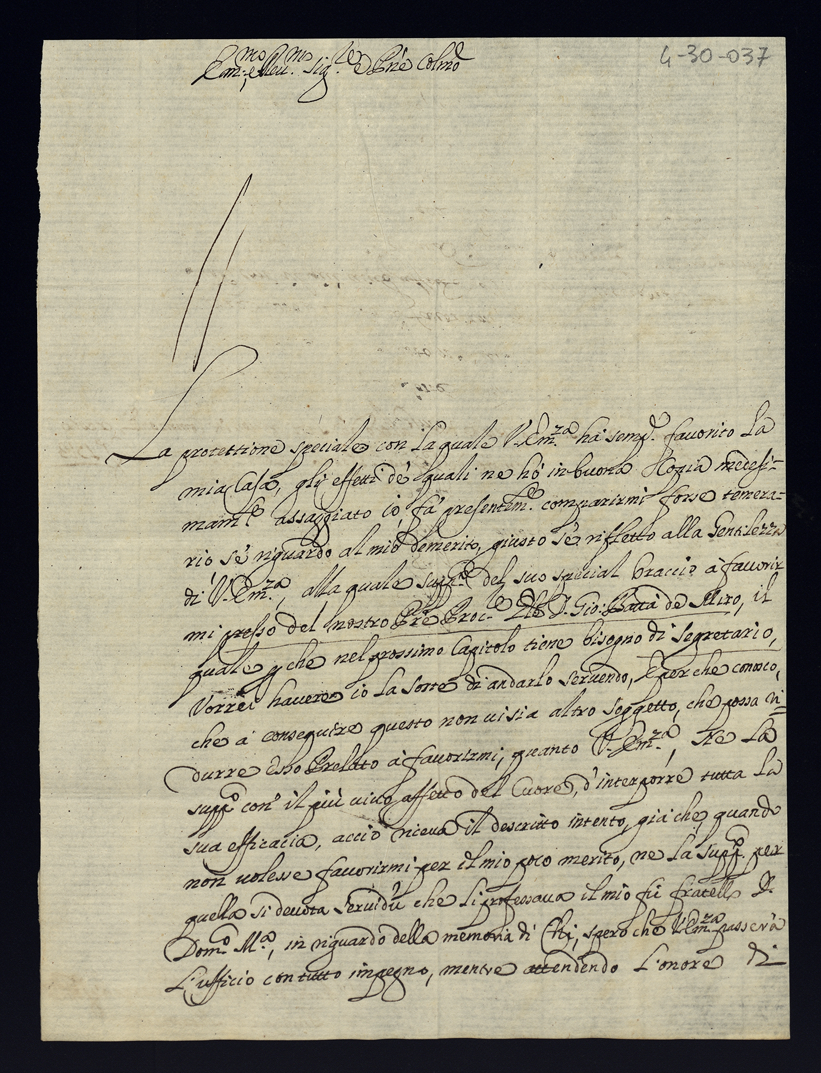 4-30-037
Em.mo e Rev.mo Sig.re e P.ne Col.mo
La protettione speciale con la quale V. Em.za hà semp.e favorito la
mia Casa, gli effetti de quali ne hò in buona copia medesi-
mam.te assaggiato io, fà presentem.e comparirmi forse temera-
rio sè riguardo al mio demerito, giusto sè rifletto alla Gentilezza
di V. Em.za, alla quale supp.co del suo special braccio à favorir
mi presso del nostro Pre Proc. Gñle D. Gio: Batta de Miro, il
quale p che nel prossimo Capitolo tiene bisogno di segretario,
vorrei havere io la sorte di andarlo servendo, e perche conosco,
che à conseguire questo non vi sia altro soggetto, che possa in
durre esso Prelato à favorirmi, quanto V. Em.za, ne la
supp.co con il più vivo affetto del Cuore, d'interporre tutta la
sua efficacia, acciò riceva il descritto intento, già che quando
non volesse favorirmi per il mio poco merito, ne la supp.co per
quella sì devota servidù che li professava il mio fù fratello D.
Dom.co M.a, in riguardo della memoria di Chi, spero che V. Em.za passerà
l'ufficio con tutto impegno, mentre attendendo l'onore di